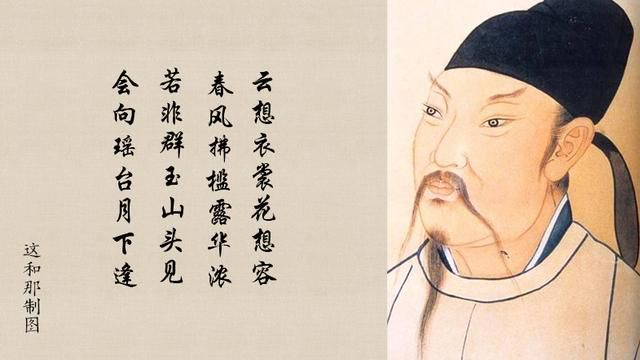 云想衣裳花想容
春风拂槛露华浓
若非群玉山头见
会向瑶台月下逢
这和那制图